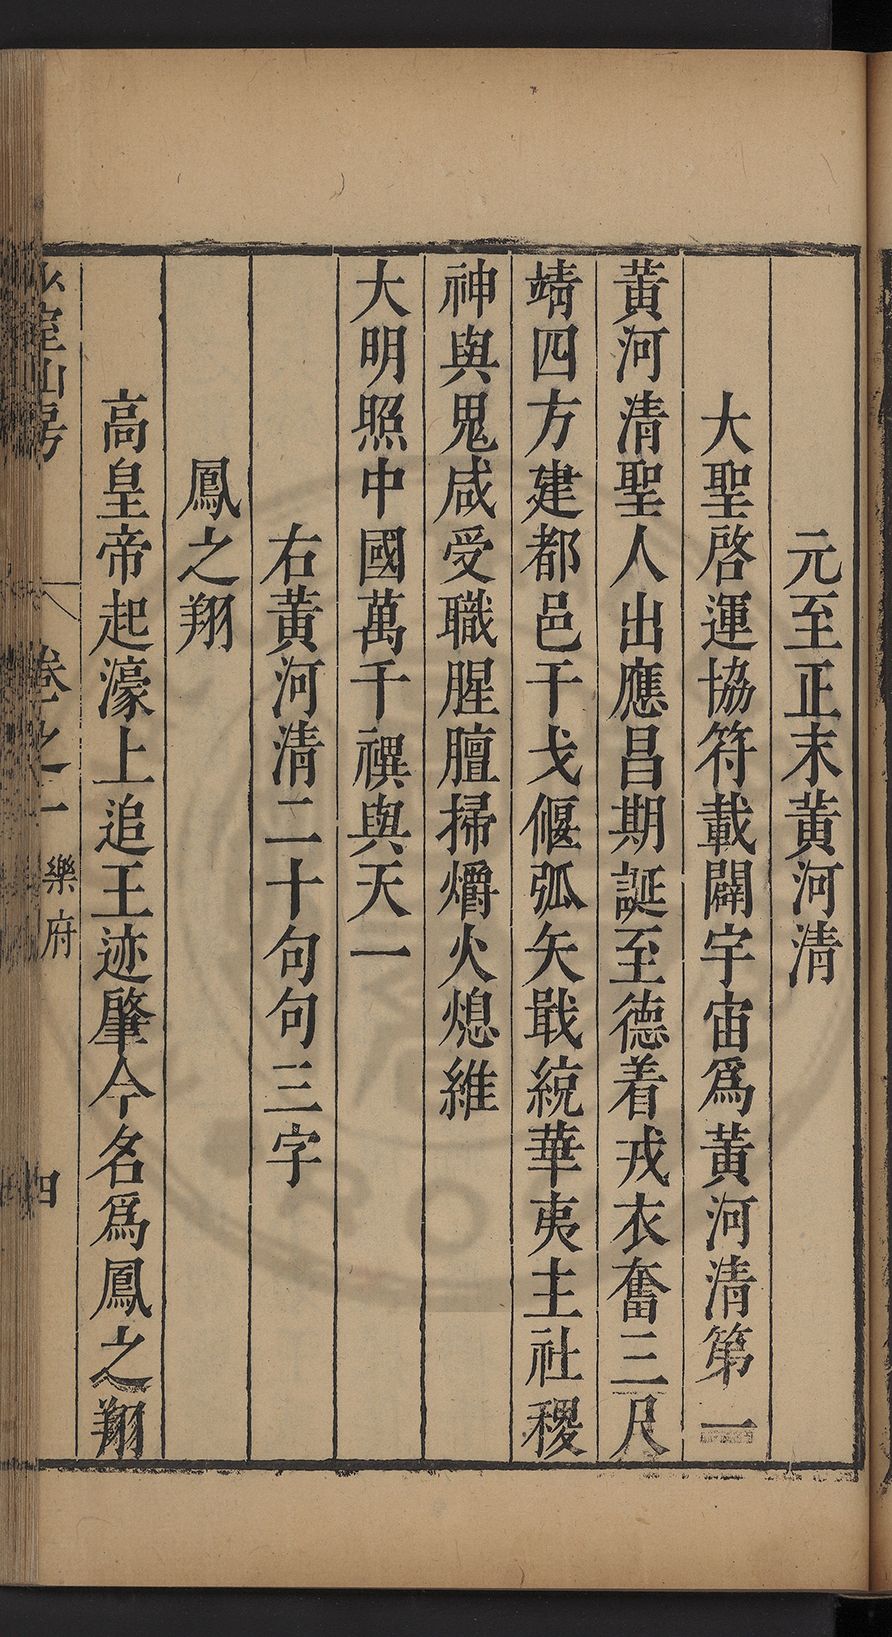 元至正末黃河清
大聖啓運協符載闢宇宙爲黃河清第一
黃河清聖人出應昌期誕至德着戎衣奮三尺
靖四方建都邑干戈偃弧矢戢統華夷主社稷
神與鬼咸受職腥膻掃爝火熄維
大明照中國萬千禩與天一
右黃河清二十句句三字
鳳之翔
高皇帝起濠上追王迹肇今名爲鳳之翔
少室山房 卷之一 樂府 四